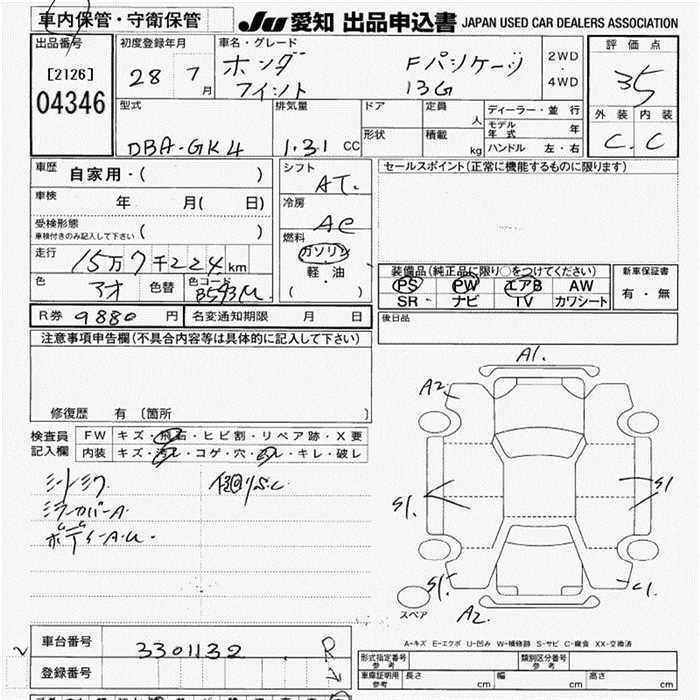 車内保管・守衛保管
JU 愛知 出品申込書 JAPAN USED CAR DEALERS ASSOCIATION
出品番号
[2126]
04346
初度登録年月
28 7月
車名・グレード
ホンダ Fパッケージ
フィット 13G
2WD
・
4WD
評価点
3.5
外装 内装
C C
型式
DBA-GK4
排気量
1.31 CC
ドア
形状
定員 人
積載 kg
ディーラー・並行
モデル年式 年
ハンドル 左・右
車歴 自家用・( )
車検 年 月( 日)
受検形態
車検付きのみ記入して下さい ( )
走行 15万7千224km
色 アオ 色替 色コード B593M
シフト
AT
冷房
AC
燃料
ガソリン
・
軽油
( )
セールスポイント(正常に機能するものに限ります)
装備品(純正品に限り○をつけてください)
PS PW エアB AW
SR ナビ TV カワシート
新車保証書
有・無
R券 9880円 名変通知期限 月 日
後日品
注意事項申告欄(不具合内容等は具体的に記入して下さい)
修復歴 有 〔箇所 〕
検査員
記入欄
FW キズ・飛石・ヒビ割・リペア跡・X要
内装 キズ・汚レ・コゲ・穴・スレ・キレ・破レ
ミラーカバーA
ボディーA.U.
A1.
A2
S1.
S1
S1.
C1.
A2
スペア
A-キズ E-エクボ U-凹み W-補修跡 S-サビ C-腐食 XX-交換済
車台番号 3301132
R
登録番号
2
形式指定番号
参考
類別区分番号
参考
車庫証明用
参考
長さ cm 幅 cm 高さ cm